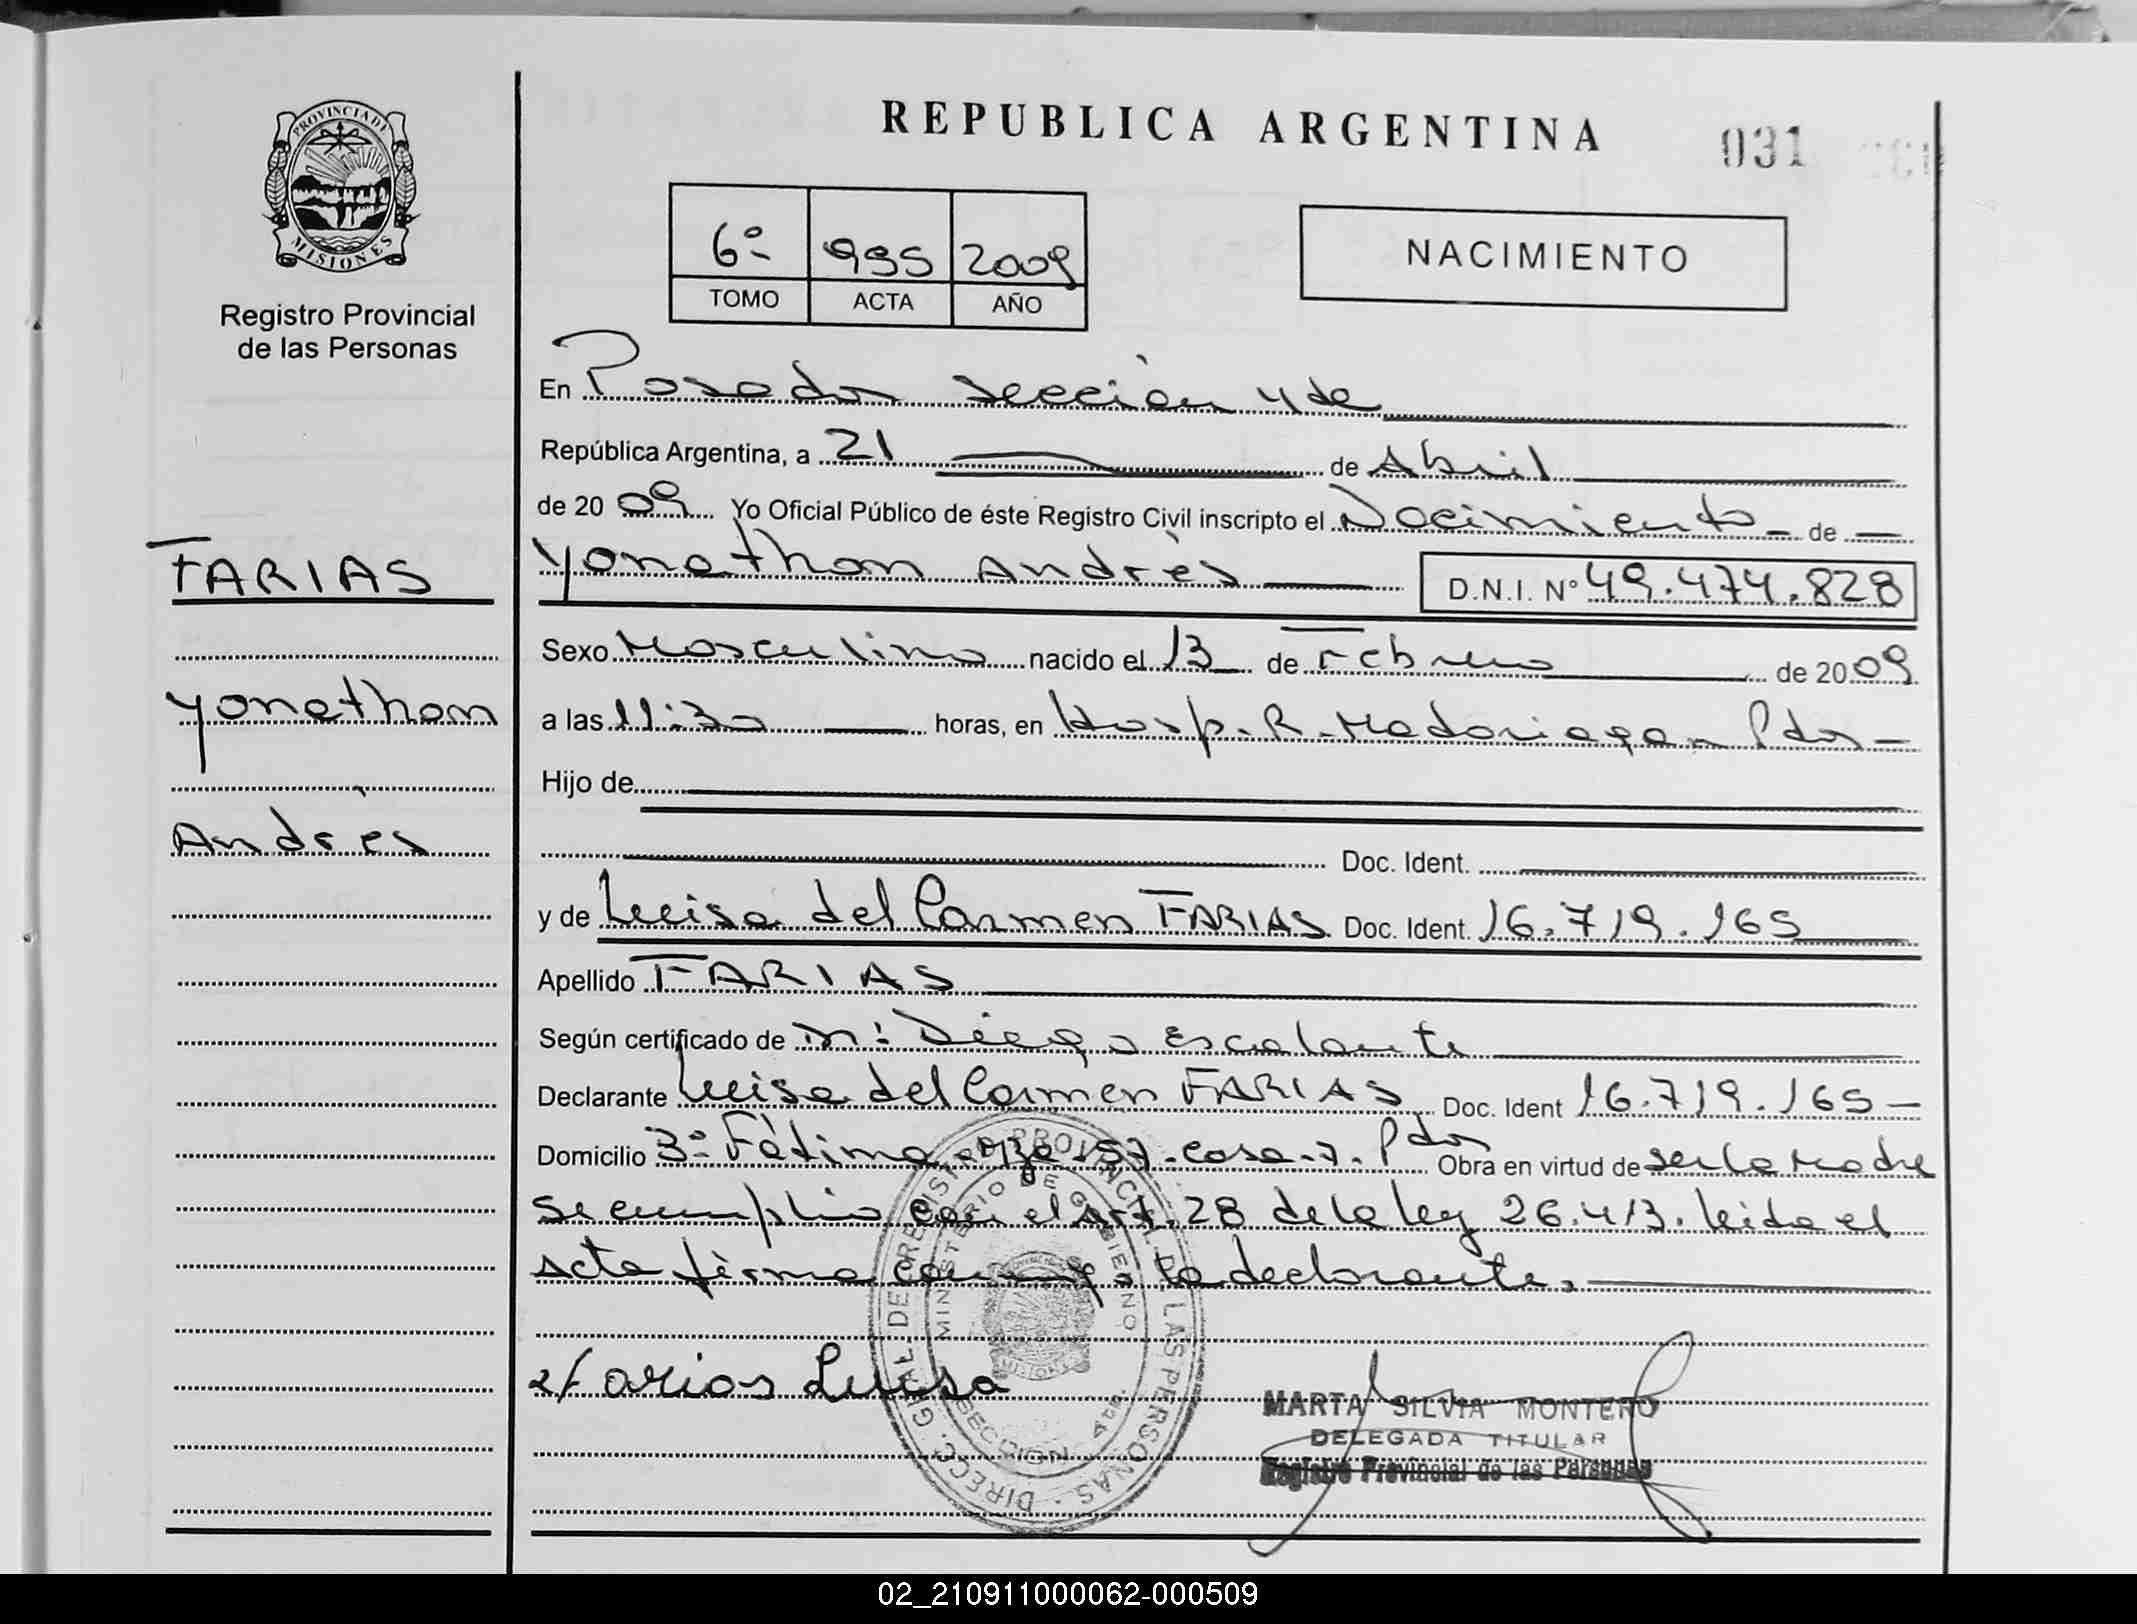 PROVINCIA DE
MISIONES
Registro Provincial
de las Personas
FARIAS
Yonathan
Andrés
REPUBLICA ARGENTINA
031
6º 995 2009
TOMO ACTA AÑO
NACIMIENTO
En Posadas sección 4 de
República Argentina, a 21 de Abril
de 20 09 Yo Oficial Público de éste Registro Civil inscripto el Nacimiento de
Yonathan Andrés D.N.I. Nº 49.474.828
Sexo Masculino nacido el 13 de Febrero de 20 09
a las 11:30 horas, en Hosp. R. Madariaga - Pdas -
Hijo de
Doc. Ident.
y de Luisa del Carmen FARIAS Doc. Ident. 16.719.165
Apellido FARIAS
Según certificado de Diego Escalante
Declarante Luisa del Carmen FARIAS Doc. Ident 16.719.165 -
Domicilio Fátima Mza 157. casa. 7. Pdas Obra en virtud de ser la Madre
se cumplió con el Art. 28 de la ley 26.413. leida el
acta firma conmigo la declarante.
Farias Luisa
DIRECC. GRAL. DE REGISTRO PROVINCIAL DE LAS PERSONAS
MINISTERIO DE GOBIERNO
SECCION 4ta
MARTA SILVIA MONTERO
DELEGADA TITULAR
Registro Provincial de las Personas
02_210911000062-000509